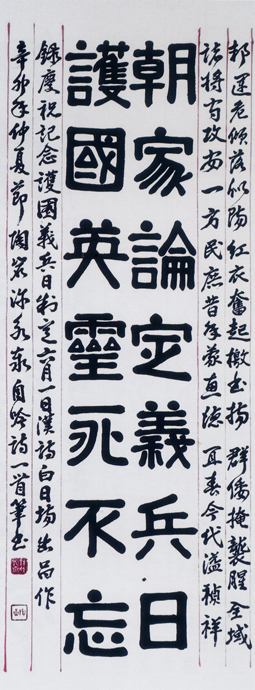 邦運危傾落似陽 紅衣奮起檄書揚 群倭掩襲腥全域
諸將守攻安一方 民庶昔年蒙惠德 耳孫今代溢禎祥
朝家論定義兵日
護國英靈死不忘
錄慶祝記念護國義兵日制定六月一日漢詩白日場出品作
辛卯年仲夏節 陶岩沈永 自吟詩一首筆書